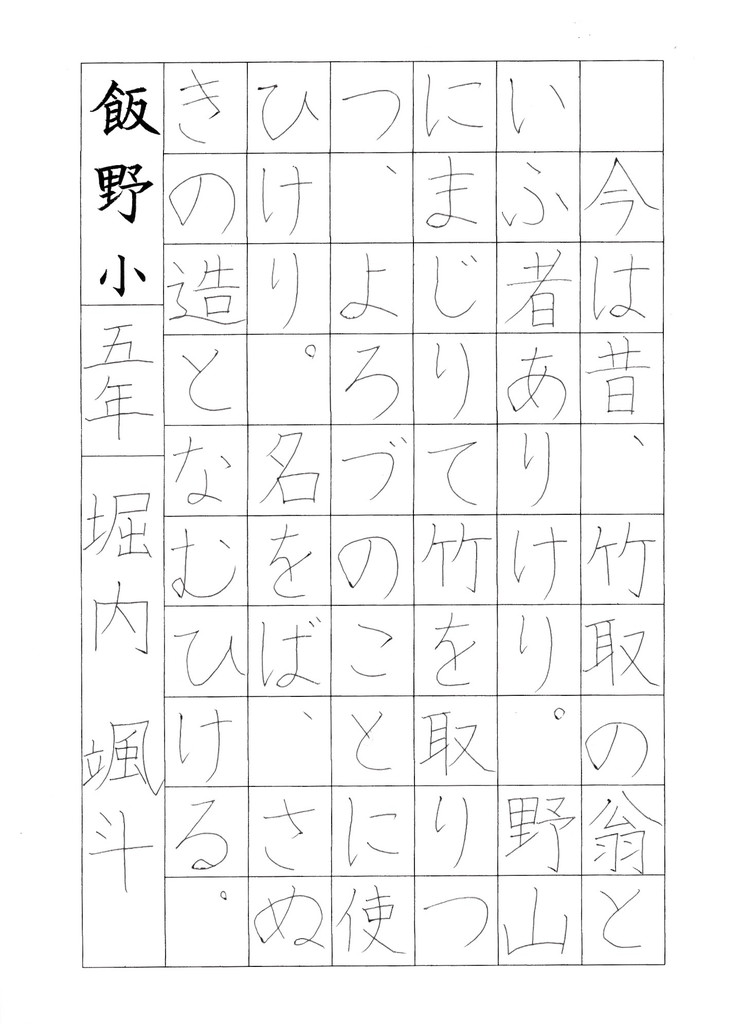 今は昔、竹取の翁と
いふ者ありけり。野山
にまじりて竹を取りつ
つ、よろづのことに使
ひけり。名をば、さぬ
きの造となむひける。
飯野小 五年 堀内 颯斗